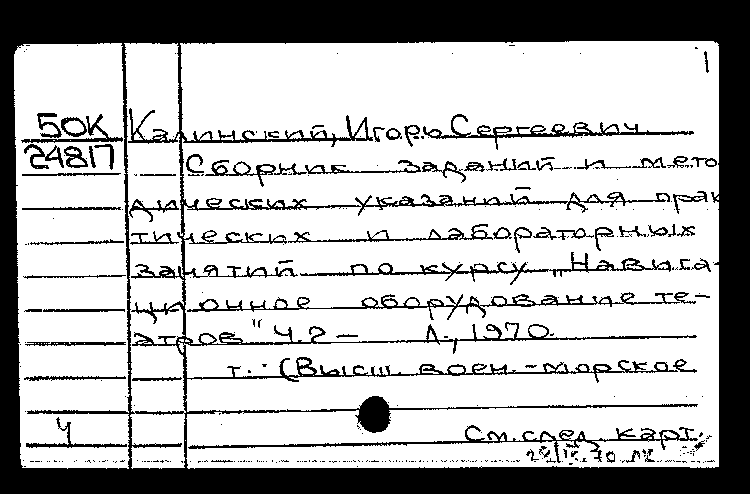 1
50К Калинский, Игорь Сергеевич.
24817 Сборник заданий и мето-
дических указаний для прак
тических и лабораторных
занятий по курсу „Навига-
ционное оборудование те-
атров" Ч.2 — Л., 1970.
т.: (Высш. воен.-морское
Ч
См. след. карт.